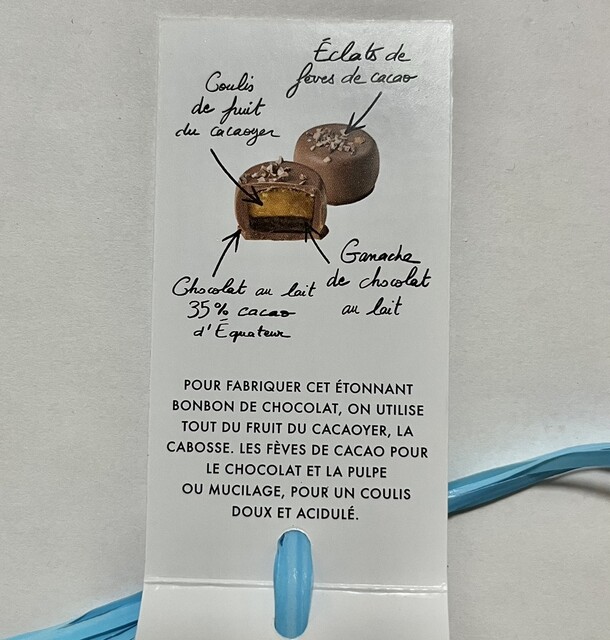 Éclats de
fèves de cacao
Coulis
de fruit
du cacaoyer
Ganache
de chocolat
au lait
Chocolat au lait
35% cacao
d'Équateur
POUR FABRIQUER CET ÉTONNANT
BONBON DE CHOCOLAT, ON UTILISE
TOUT DU FRUIT DU CACAOYER, LA
CABOSSE. LES FÈVES DE CACAO POUR
LE CHOCOLAT ET LA PULPE
OU MUCILAGE, POUR UN COULIS
DOUX ET ACIDULÉ.